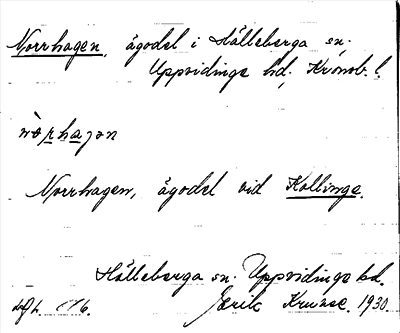 Norrhagen, ägodel i Hälleberga sn.
Uppvidinge hd, Kronob. l.
Norrhagen, ägodel vid Kollinge.
Hälleberga sn. Uppvidinge hd.
Erik Kruuse. 1930.